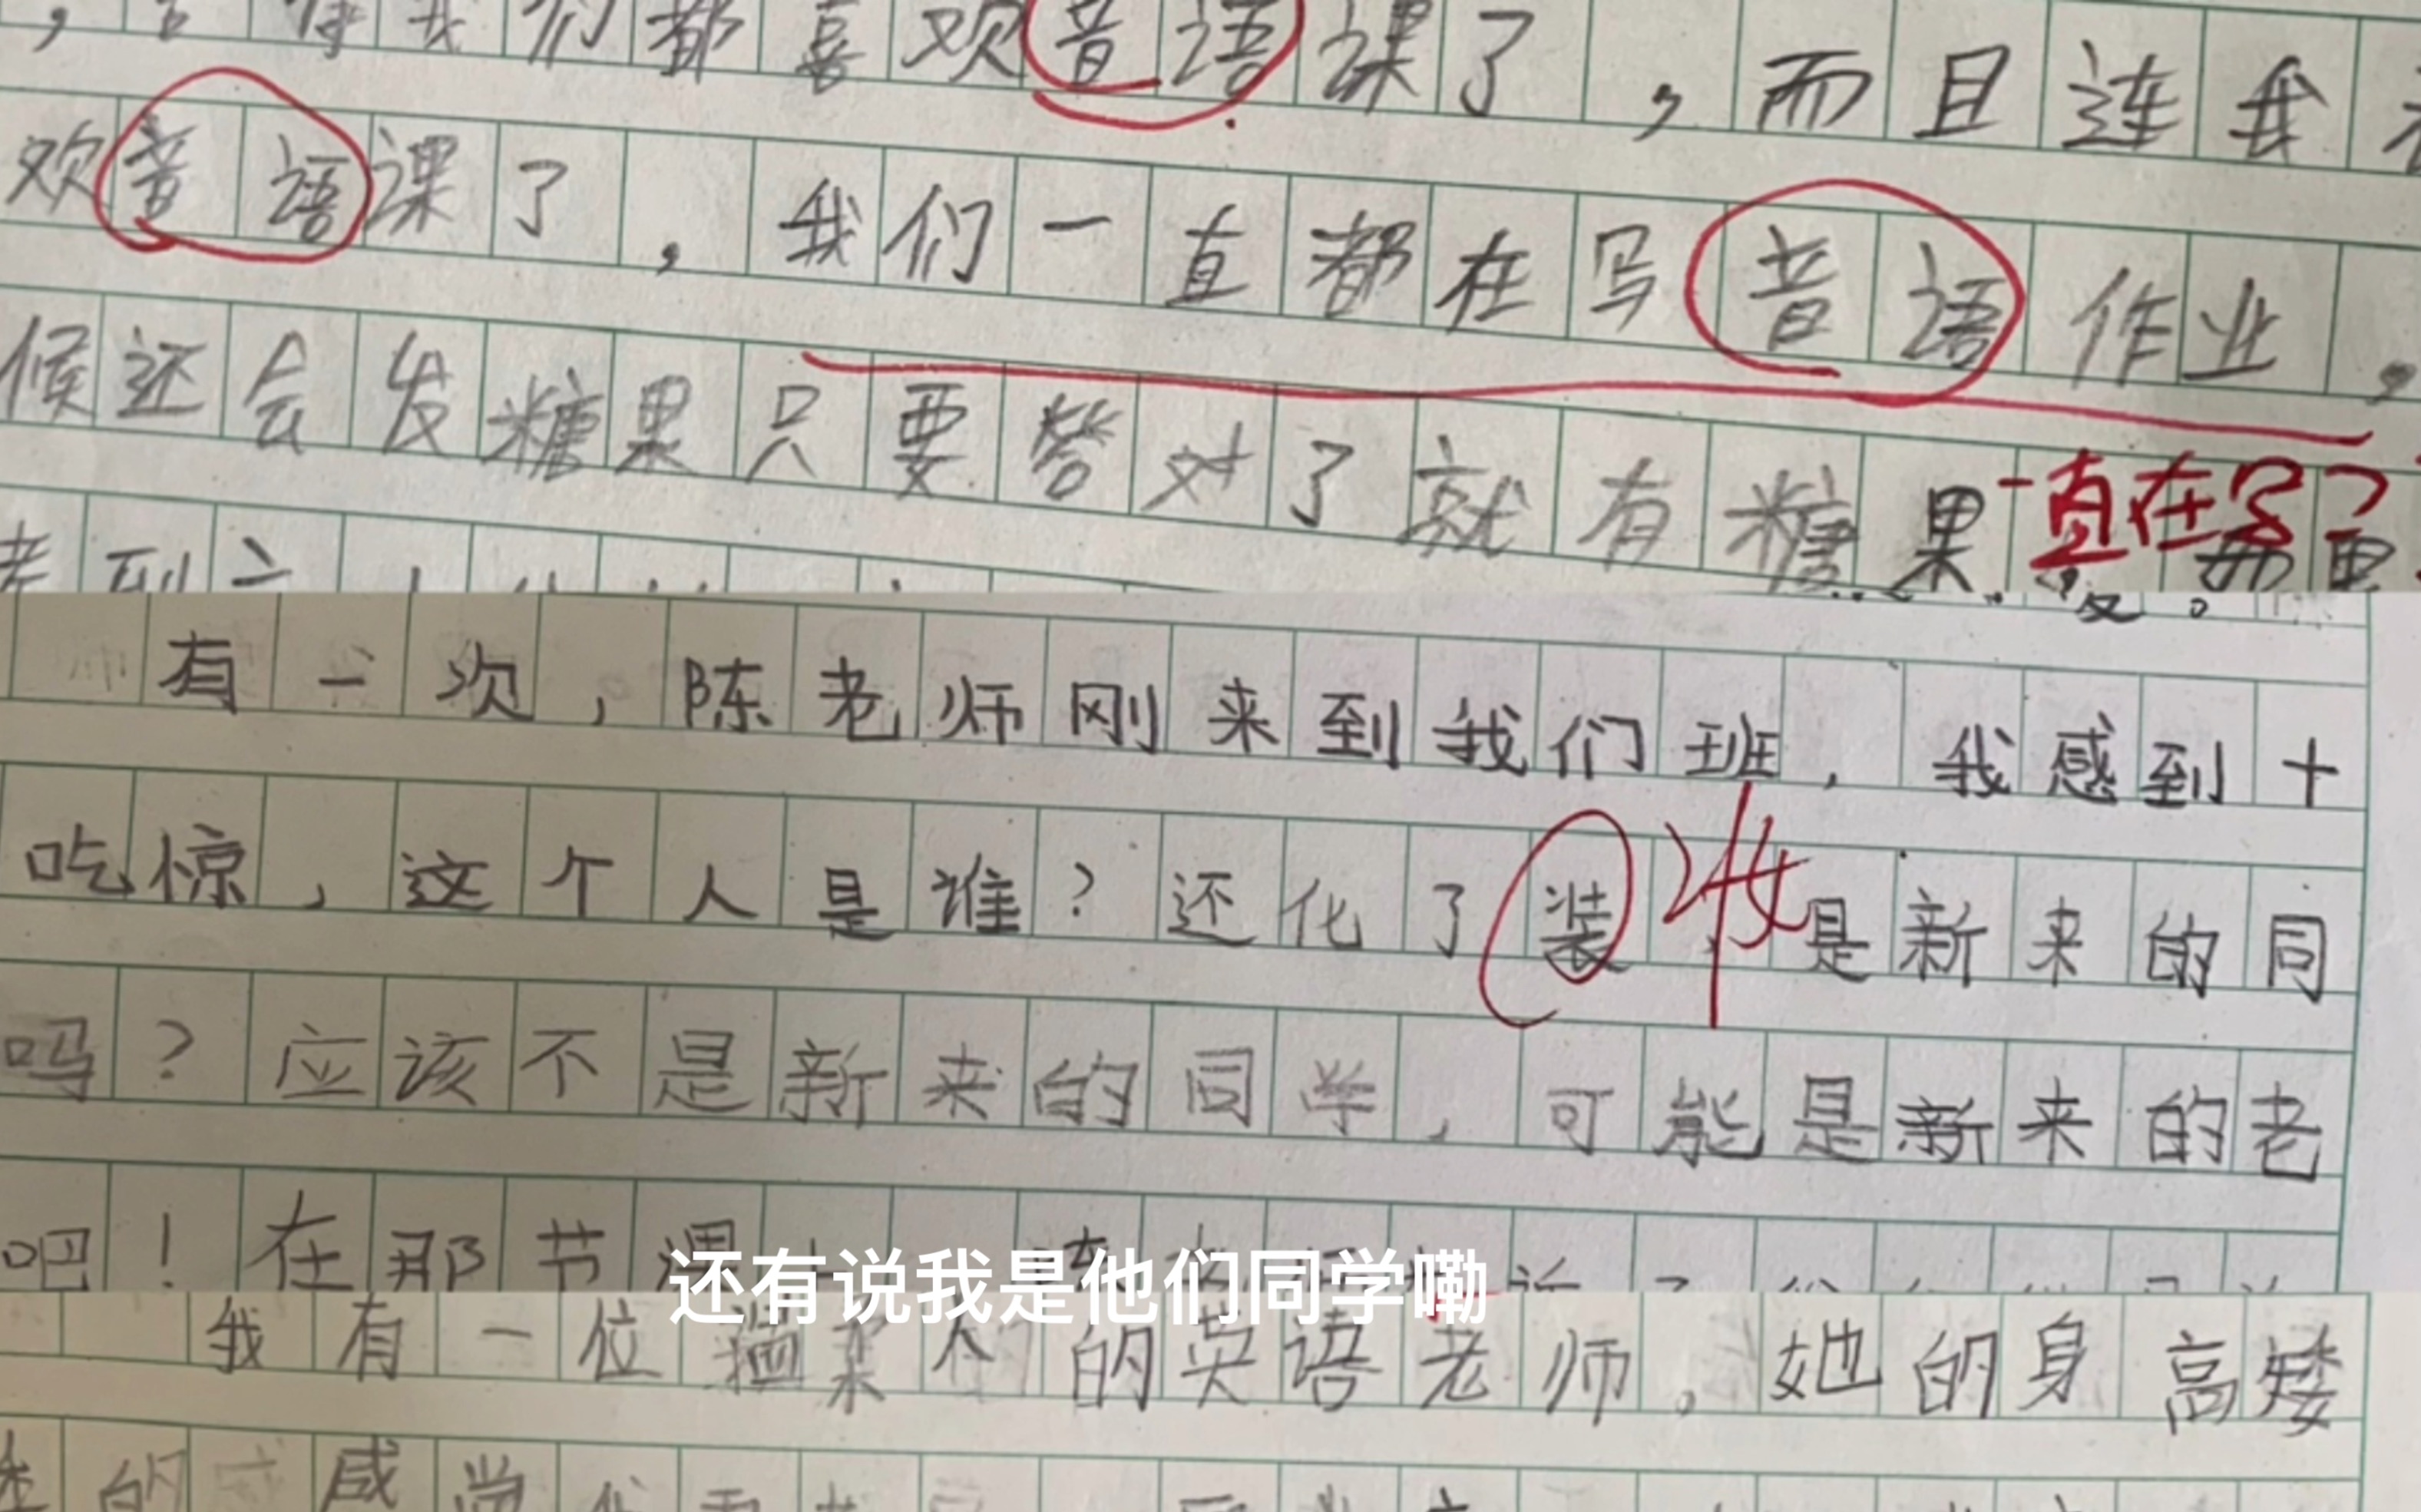 们都喜欢音语课了，而且连我
欢音语课了，我们一直都在写音语作业，
候还会发糖果只要答对了就有糖果
一直在写？
有一次，陈老师刚来到我们班，我感到十
吃惊，这个人是谁？还化了装，是新来的同
妆
吗？应该不是新来的同学，可能是新来的老
吧！在那节课
还有说我是他们同学嘞
我有一位 的英语老师，她的身高矮
的 感觉